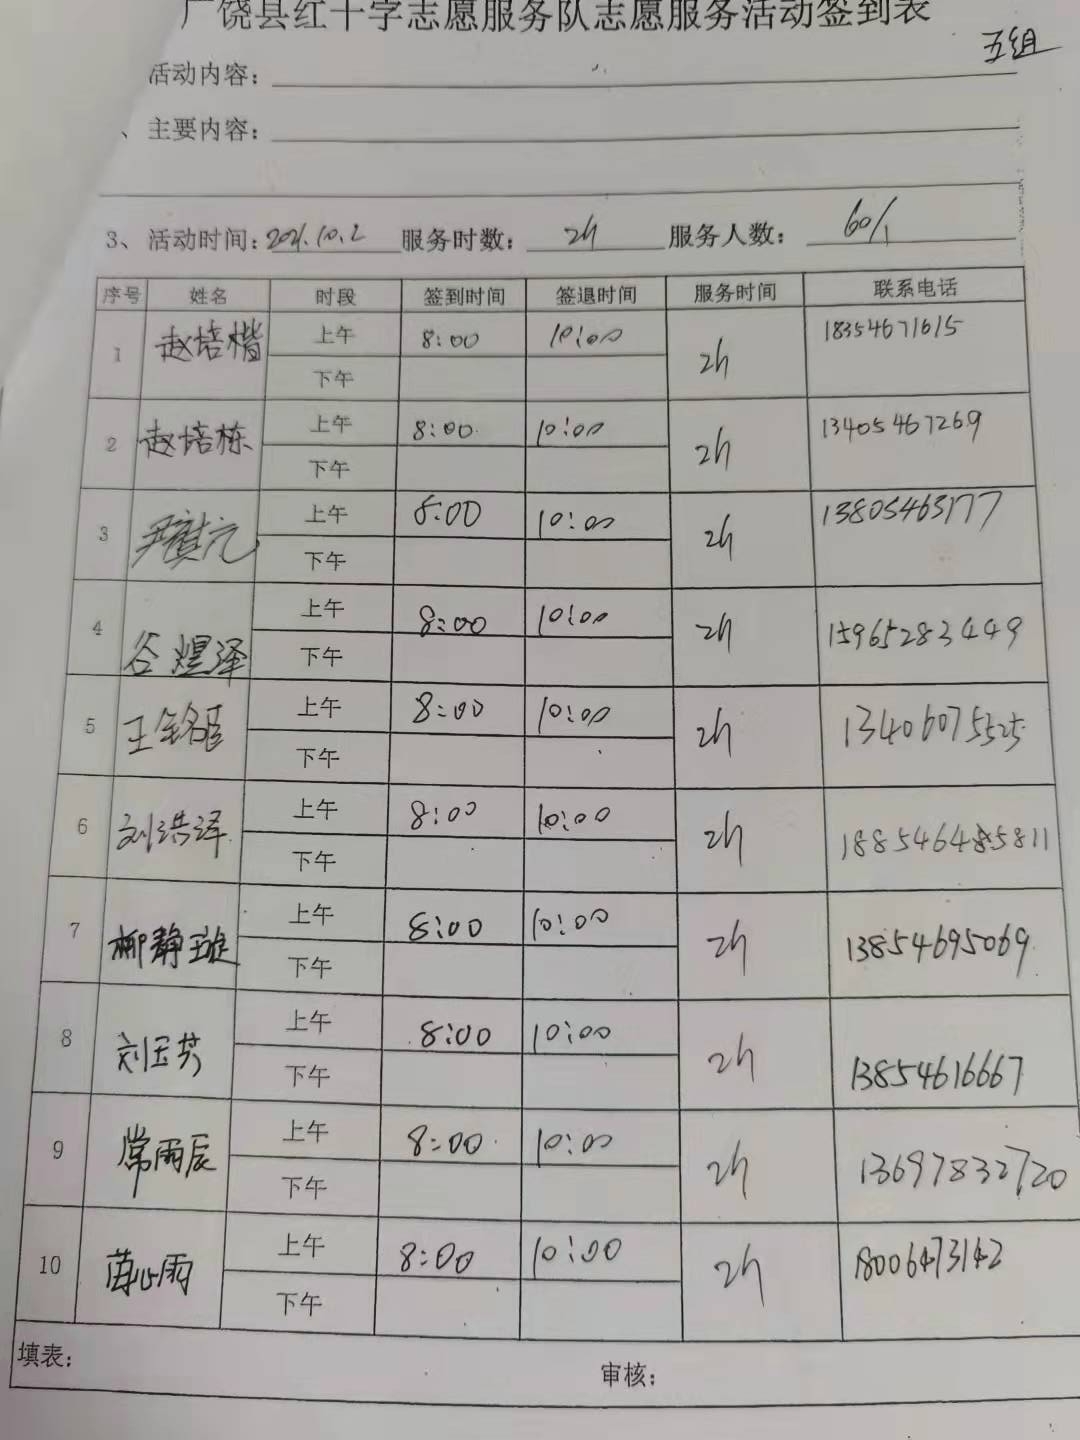 广饶县红十字志愿服务队志愿服务活动签到表
五组
活动内容：
、主要内容：
3、活动时间：2021.10.2 服务时数：2h 服务人数：60人
序号 姓名 时段 签到时间 签退时间 服务时间 联系电话
1 赵培楷 上午 8:00 10:00 2h 18354671615
下午
2 赵培栋 上午 8:00 10:00 2h 13405467269
下午
3 上午 8:00 10:00 2h 13805463177
下午
4 谷煜泽 上午 8:00 10:00 2h 15965283449
下午
5 上午 8:00 10:00 2h 13406075525
下午
6 刘浩泽 上午 8:00 10:00 2h
下午
7 柳静璇 上午 8:00 10:00 2h 13854695069
下午
8 刘玉芳 上午 8:00 10:00 2h 13854616667
下午
9 常雨辰 上午 8:00 10:00 2h 13697832720
下午
10 苗心雨 上午 8:00 10:00 2h 18006473142
下午
填表： 审核：